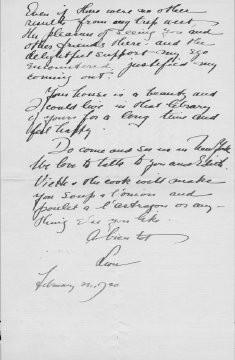 Even if there were no other
result from my trip west
the pleasure of seeing you and
other friends there and the
delightful support my ego
encountered, justified my
coming out.
Your house is a beauty and
I could live in that library
of yours for a long time and
feel happy.
Do come and see us in New York
We love to talk to you and Edith.
the cook will make
you soup a l'onion and
poulet a l'estragon or any-
thing else you like.
A bientot
February 22, 1920